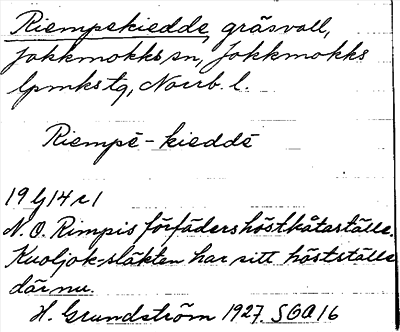 Riempekiedde, gräsvall,
Jokkmokks sn, Jokkmokks
lpmkstg, Norrb. l.
Riempē-kieddē
19 G 14 c 1
N. O. Rimpis förfäders höstkåtaställe.
Kuoljok-släkten har sitt höstställe
där nu.
H. Grundström 1927. SOA 16